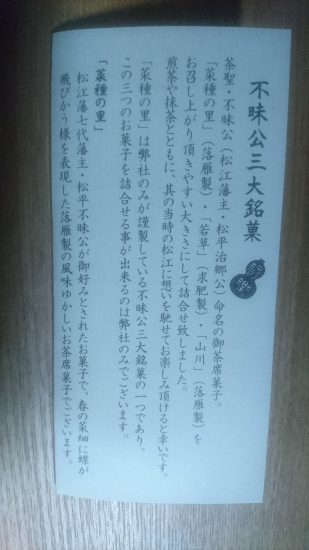 不昧公三大銘菓
茶聖・不昧公(松江藩主・松平治郷公)命名の御茶席菓子。
「菜種の里」(落雁製)・「若草」(求肥製)・「山川」(落雁製)を
お召し上がり頂きやすい大きさにして詰合せ致しました。
煎茶や抹茶とともに、其の当時の松江に想いを馳せてお楽しみ頂けると幸いです。
「菜種の里」は弊社のみが謹製している不昧公三大銘菓の一つであり、
この三つのお菓子を詰合せる事が出来るのは弊社のみでございます。
「菜種の里」
松江藩七代藩主・松平不昧公が御好みとされたお菓子で、春の菜畑に蝶が
飛びかう様を表現した落雁製の風味ゆかしいお茶席菓子でございます。